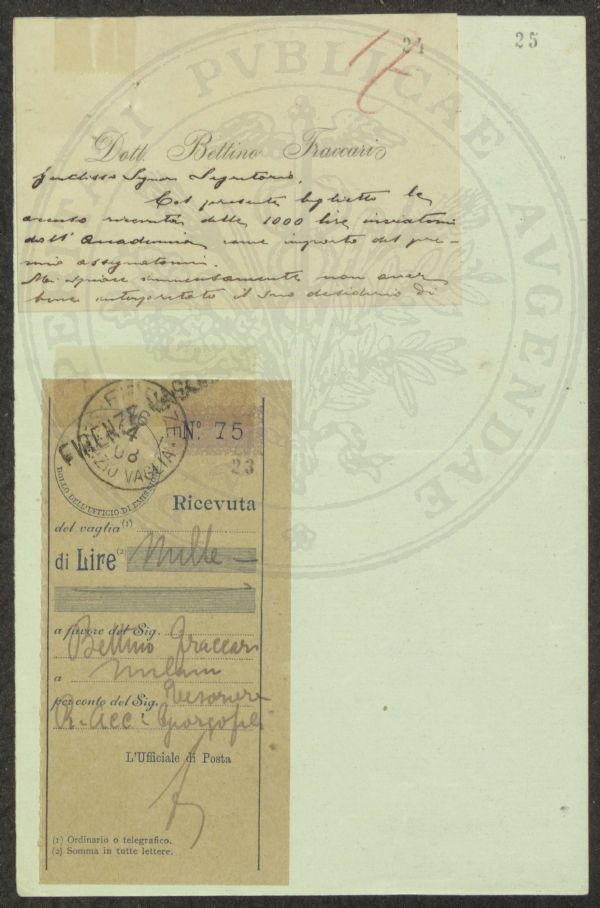 24
25
PVBLICAE
AVGENDAE
Dott. Bettino Fraccari
Signor Segretario,
Col presente biglietto Le
accuso ricevuta delle 1000 lire inviatemi
dall' Accademia come importo del pre-
mio assegnatomi.
Mi spiace immensamente non aver
bene interpretato il Suo desiderio di
FIRENZE
FIRENZE
4
08
VAGLIA
BOLLO DELL'UFFICIO DI EMISSIONE
N° 75
23
Ricevuta
del vaglia (1)
di Lire (2) Mille —
a favore del Sig.
Bettino Fraccari
a Milano
per conto del Sig. Tesoriere
R. Acc: Georgofili
L'Ufficiale di Posta
(1) Ordinario o telegrafico.
(2) Somma in tutte lettere.